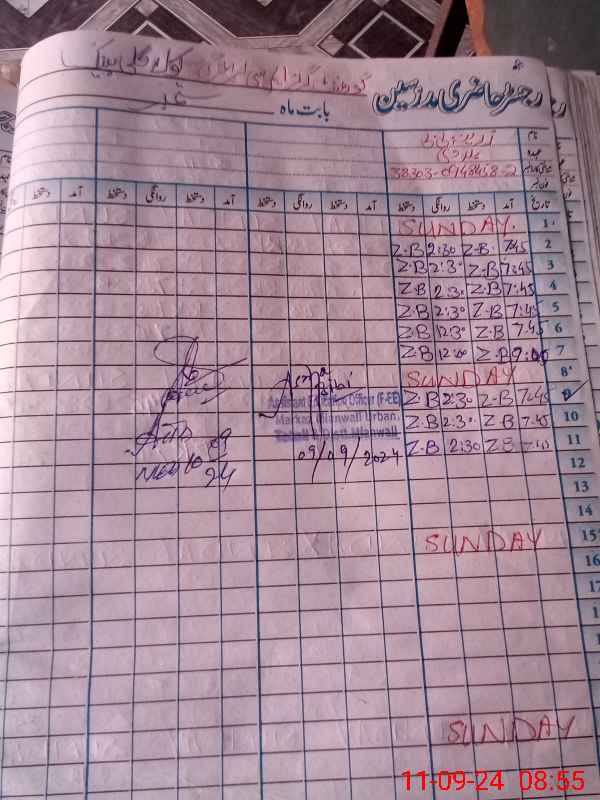 رجسٹر حاضری مدرسین
بابت ماہ ستمبر
نام
عہدہ
38303-0948458-2
تاریخ آمد دستخط روانگی دستخط آمد دستخط روانگی دستخط آمد دستخط روانگی دستخط آمد
1 SUNDAY.
2 7:45 Z.B 2:30 Z.B
3 7:45 Z.B 2:30 Z.B
4 7:45 Z.B 2:30 Z.B
5 7:45 Z.B 2:30 Z.B
6 7:45 Z.B 12:30 Z.B
7 9:00 Z.B 12:00 Z.B
8 SUNDAY
9 7:45 Z.B 2:30 Z.B
10 7:45 Z.B 2:30 Z.B
11 7:45 Z.B 2:30 Z.B
12
13
14
15 SUNDAY
16
17
SUNDAY
Asma Bibi
Assistant Education Officer (F-EE)
Markaz Mianwali Urban.
Tehsil & Distt Mianwali
09/09/2024
AEO
09
24
11-09-24 08:55